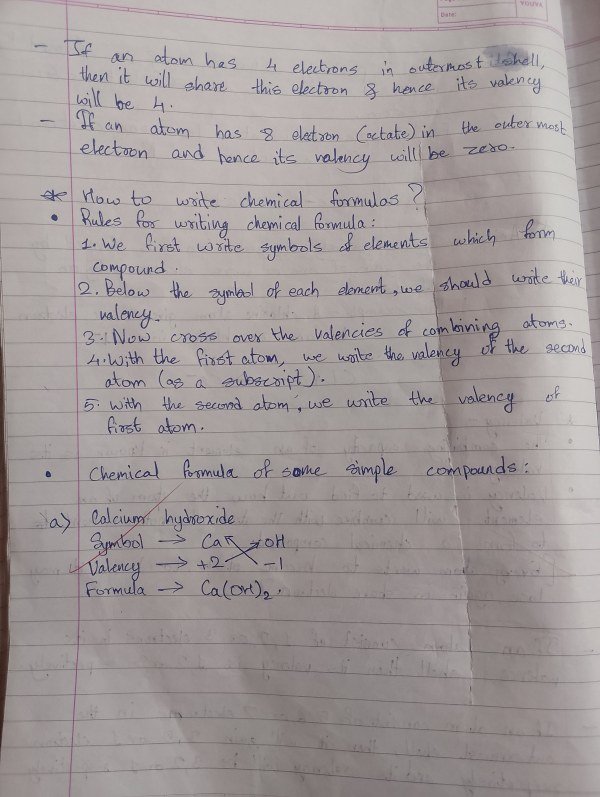 YOUVA
Date:
- If an atom has 4 electrons in outermost shell,
then it will share this electron & hence its valency
will be 4.
- If an atom has 8 elctron (octate) in the outer most
electron and hence its valency will be zero.
* How to write chemical formulas?
• Rules for writing chemical formula:
1. We first write symbols of elements which form
compound.
2. Below the symbol of each element, we should write their
valency.
3. Now cross over the valencies of combining atoms.
4. With the first atom, we write the valency of the second
atom (as a subscript).
5. With the second atom, we write the valency of
first atom.
• Chemical formula of some simple compounds:
a) Calcium hydroxide
Symbol → Ca OH
Valency → +2 -1
Formula → Ca(OH)₂.